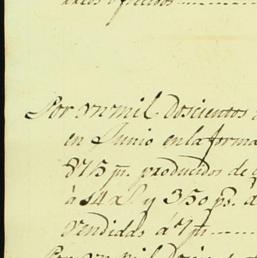 Por vn mil Doscientos
en Junio en la forma
875 ps. producidos de
à 14 rs. y 350 ps. a
vendidas á 7 ps
Por vn mil